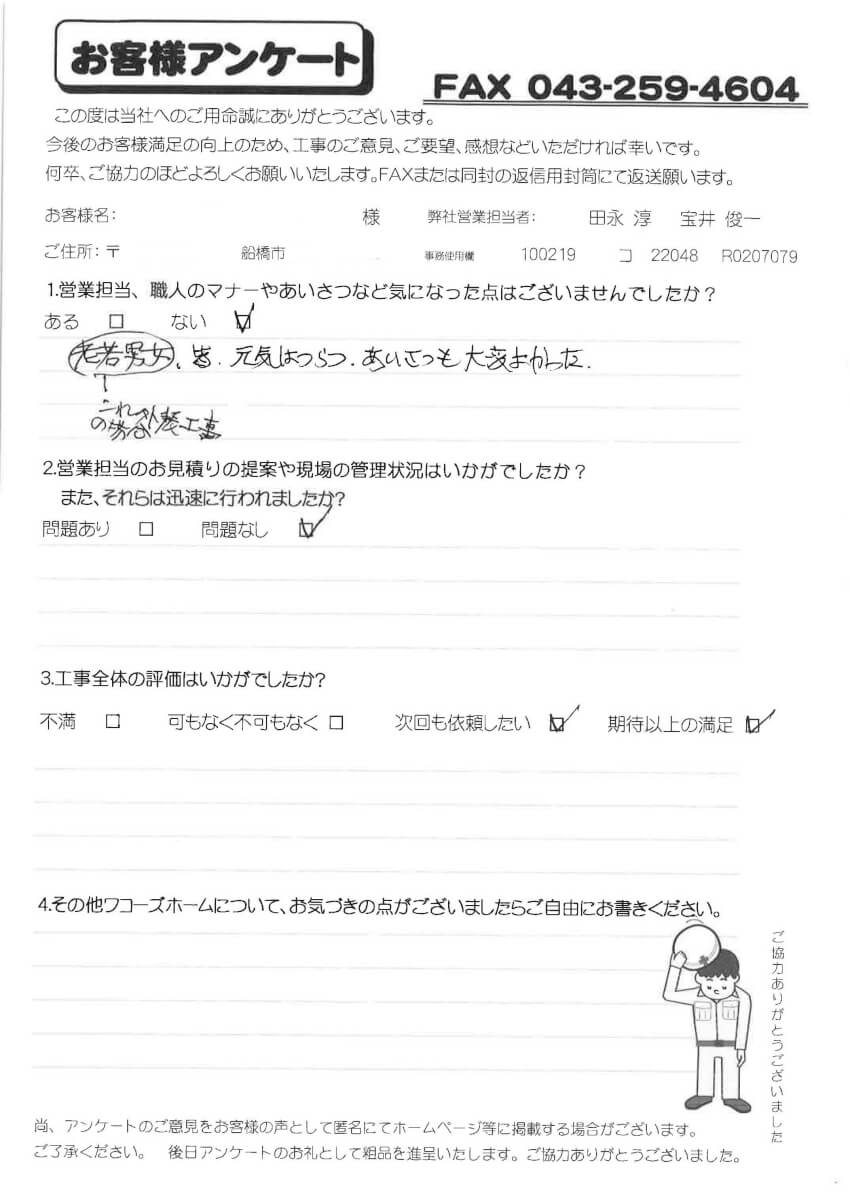 お客様アンケート
FAX 043-259-4604
この度は当社へのご用命誠にありがとうございます。
今後のお客様満足の向上のため、工事のご意見、ご要望、感想などいただければ幸いです。
何卒、ご協力のほどよろしくお願いいたします。FAXまたは同封の返信用封筒にて返送願います。
お客様名: 様 弊社営業担当者: 田永 淳 宝井 俊一
ご住所:〒 船橋市 事務使用欄 100219 コ 22048 R0207079
1.営業担当、職人のマナーやあいさつなど気になった点はございませんでしたか?
ある □ ない ☑
老若男女、皆、元気はつらつ、あいさつも大変よかった.
↑
これ
の 外装工事
2.営業担当のお見積りの提案や現場の管理状況はいかがでしたか?
また、それらは迅速に行われましたか?
問題あり □ 問題なし ☑
3.工事全体の評価はいかがでしたか?
不満 □ 可もなく不可もなく □ 次回も依頼したい ☑ 期待以上の満足 ☑
4.その他ワコーズホームについて、お気づきの点がございましたらご自由にお書きください。
ご協力ありがとうございました
尚、アンケートのご意見をお客様の声として匿名にてホームページ等に掲載する場合がございます。
ご了承ください。 後日アンケートのお礼として粗品を進呈いたします。ご協力ありがとうございました。